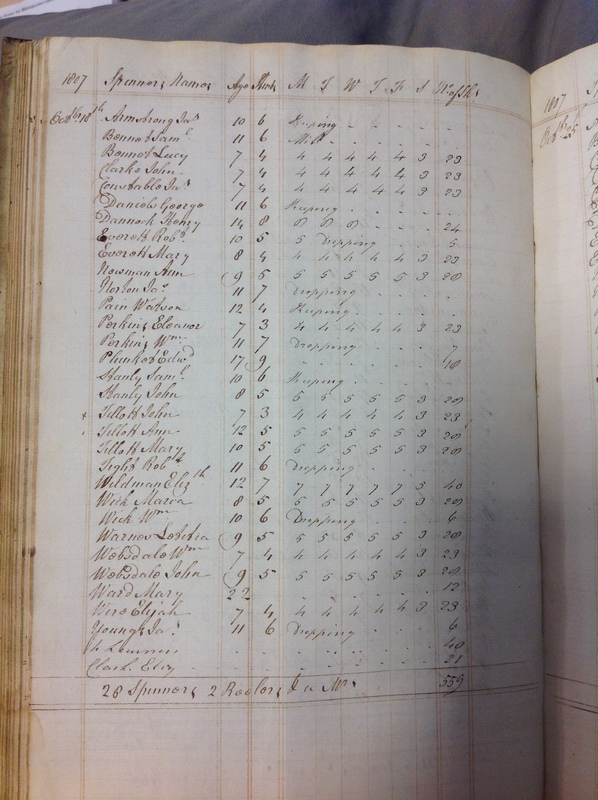 1807 Spinners Names Age Stint M T W T F S No of Sks
Octbr 18th Armstrong Jas 10 6 Keeping
Bennet Saml 11 6
Bennet Lucy 7 4 4 4 4 4 4 3 23
Clarke John 7 4 4 4 4 4 4 3 23
Constable Jas 7 4 4 4 4 4 4 3 23
Daniels George 11 6 Keeping
Dannock Henry 14 8 8 8 8 24
Everett Robt 10 5 5 Dropping 5
Everett Mary 8 4 4 4 4 4 4 3 23
Newman Ann 9 5 5 5 5 5 5 3 28
Norton Jas 11 7 Dropping
Pain Watson 12 4 Keeping
Perkins Eleanor 7 3 4 4 4 4 4 3 23
Perkins Wm 11 7 Dropping 7
Plunket Edwd 17 9 18
Stanly Saml 10 6 Keeping
Stanly John 8 5 5 5 5 5 5 3 28
Tillott John 7 3 4 4 4 4 4 3 23
Tillott Ann 12 5 5 5 5 5 5 3 28
Tillott Mary 10 5 5 5 5 5 5 3 28
Tight Robt 11 6 Dropping
Wildman Elizth 12 7 7 7 7 7 7 5 40
Wick Maria 8 5 5 5 5 5 5 3 28
Wick Wm 10 6 Dropping 6
Warnes Letitia 9 5 5 5 5 5 5 3 28
Websdale Wm 7 4 4 4 4 4 4 3 23
Websdale John 9 5 5 5 5 5 5 3 28
Ward Mary 22 12
Wire Elijah 7 4 4 4 4 4 4 3 23
Youngs Jas 11 6 Dropping 6
4 Learners 40
Clark Eliz 21
28 Spinners 2 Reelers 559
1807
Octbr 25